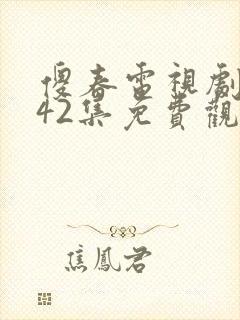 傻春電視劇
42集免費觀
焦鳳君